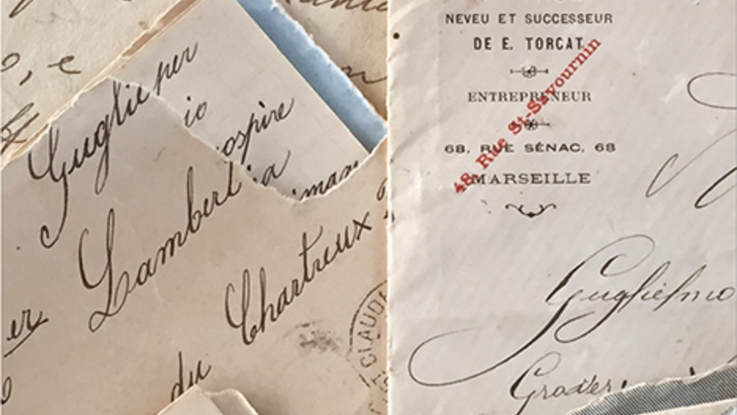 Guglie
per
io
ospire
ia
iman
Lambert
er
du Chartreux
CLAUDE
NEVEU ET SUCCESSEUR
DE E. TORCAT
ENTREPRENEUR
68, RUE SÉNAC, 68
MARSEILLE
48 Rue St-Savournin
Guglielmo
Graver